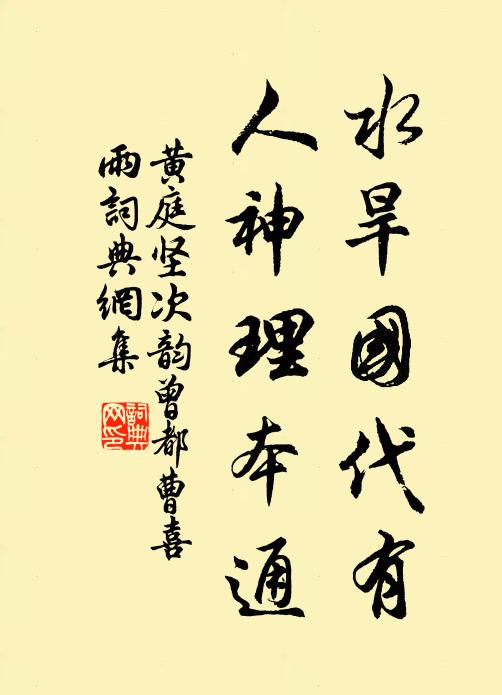 水旱國代有
人神理本通
黄庭坚次韵曾都曹喜
雨詞典網集
詞典
网印